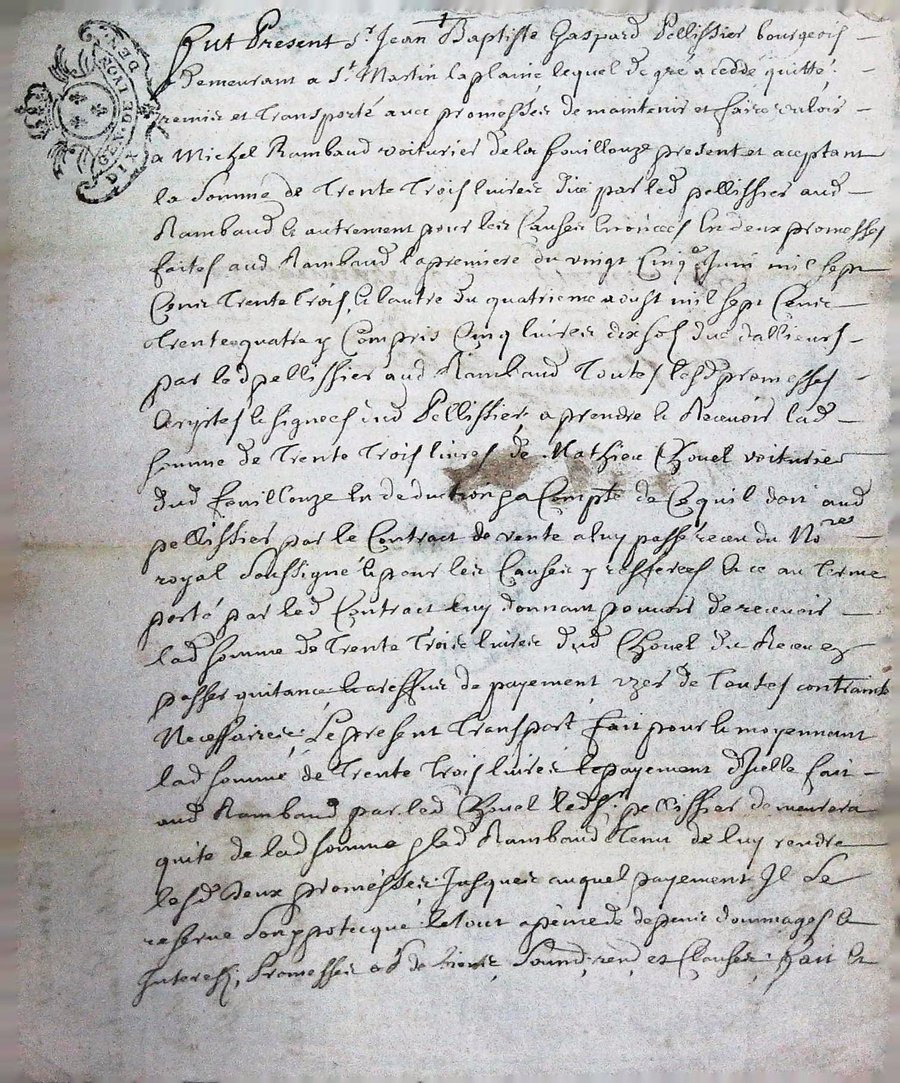 GEN. DE LION
DIX DEN.
Fut Present Sr. Jean Baptiste Gaspard Pellissier bourgeois
demeurant a St. Martin la plaine lequel de gré a ceddé quitté
remis et transporté avec promesses de maintenir et faire valoir
a Michel Rambaud voiturier de la fouillouze present et aceptant
la somme de trente trois livres due par led pellissier aud
Rambaud & autrement pour les causes enoncees en deux promesses
faites aud Rambaud la premiere du vingt cinqe Juin mil sept
cens trente trois, & lautre du quatrieme aoust mil sept cens
trente quatre y compris cinq livres dix sols due dallieurs
par led pellissier aud Rambaud toutes lesd promesses
ecrystes & signees dud Pellissier, a prendre & recevoir lad
somme de trente trois livres de Mathieu Chovel voiturier
dud fouillouze en deduction & a compte de ce quil doit aud
pellissier par le contract de vente a luy passé receu du Nore
royal soussigné & pour les causes y refferees & ce au terme
porté par led contract luy donnant pouvoir de recevoir
lad somme de trente trois livres dud Chovel du receu en
passer quitance & a reffus de payement uzer de toutes contraintes
Necessaires, Le present transport fait pour & moyennant
lad somme de trente trois livres le payement dicelle fait
aud Rambaud par led Chovel led sr pellissier demeurera
quite de lad somme & led Rambaud tenu de luy rendre
lesd deux promesses Jusques auquel payement Il se
reserve son ypotecque, le tout a peine de depens dommages &
Interests, Promesses de biens et clauses fait &